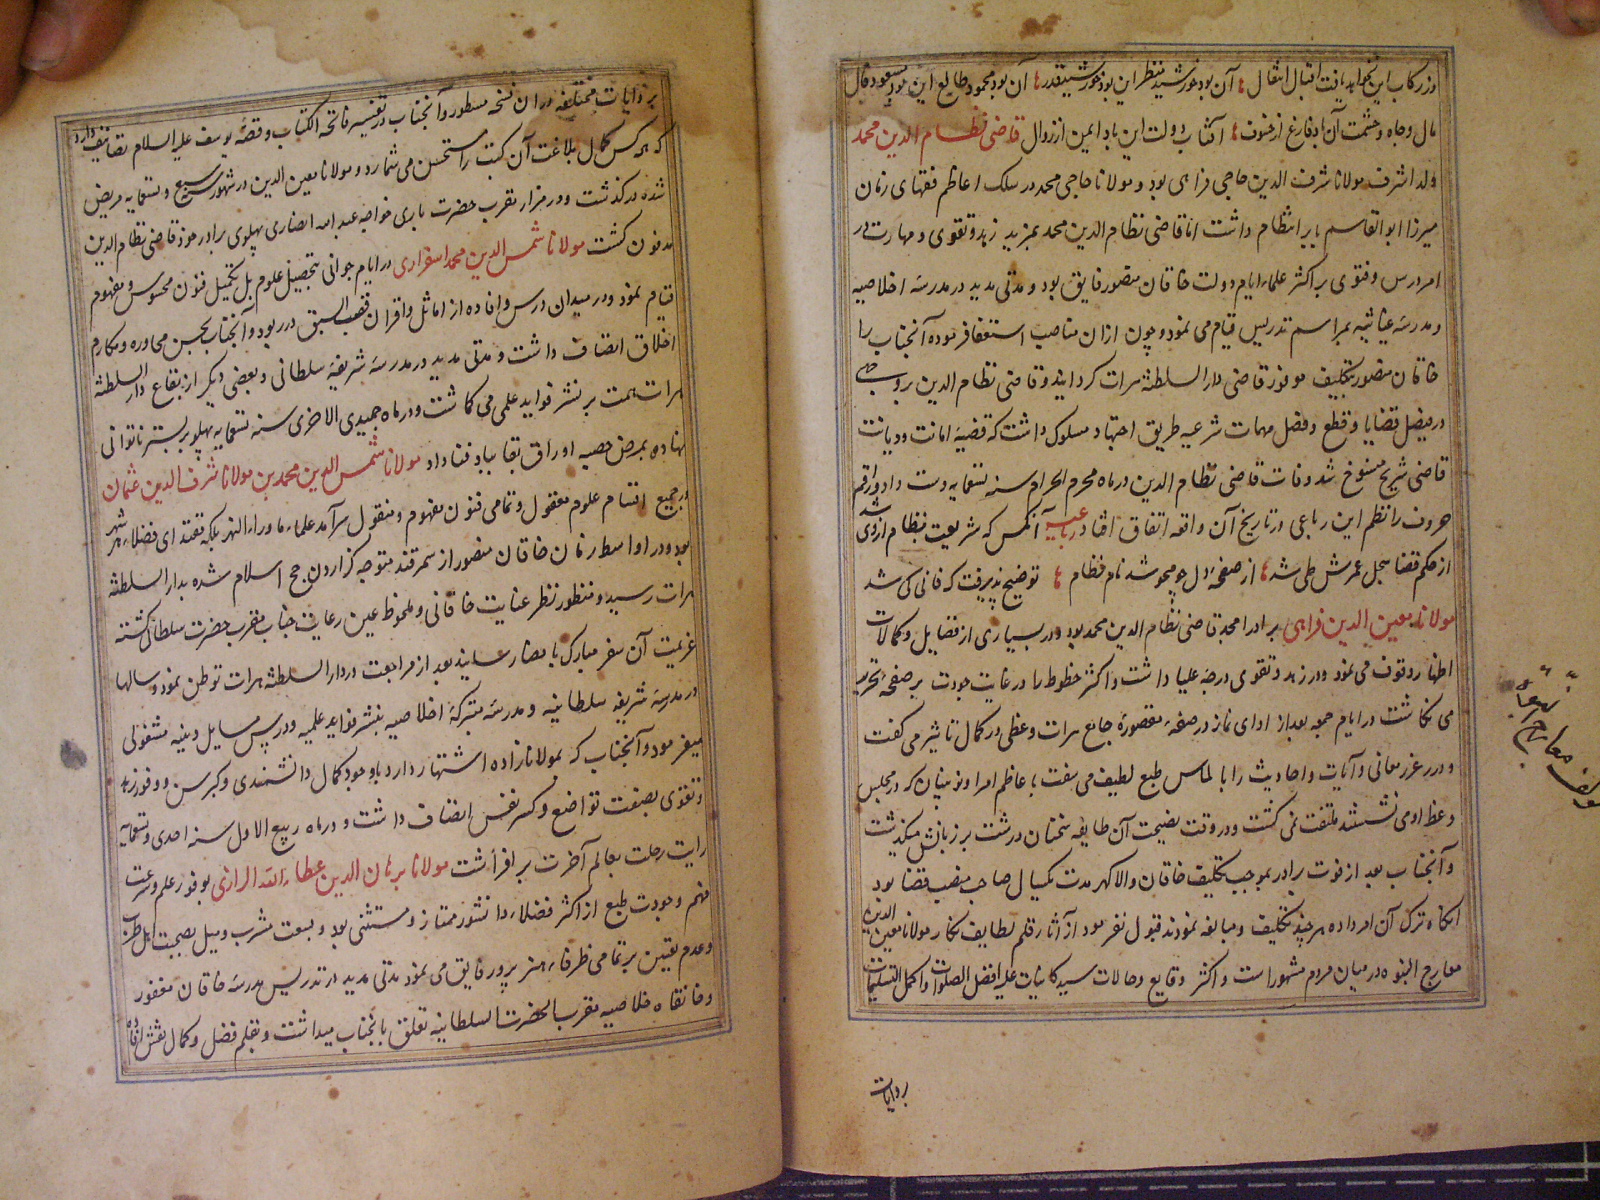 وزر کاب این نخواهد یافت اقبال انتقال آن بود خورشید منظر این بود خورشید قدر آن بود محمود طالع این بود مسعود فال
مال و جاه و حشمت آن باد فارغ از فنوت آفتاب دولت این باد ایمن از زوال قاضی نظام الدین محمد
ولد اشرف مولانا شرف الدین حاجی فراهی بود و مولانا حاجی محمد در سلک اعاظم فقهای زمان
میرزا ابوالقاسم بابر انتظام داشت اما قاضی نظام الدین محمد بمزید زهد و تقوی و مهارت در
امر درس و فتوی بر اکثر علماء ایام دولت خاقان منصور فایق بود و مدتی مدید در مدرسه اخلاصیه
و مدرسه غیاثیه بمراسم تدریس قیام می نمود و چون ازان مناصب استعفا فرموده آنجناب را
خاقان منصور بتکلیف موفور قاضی دارالسلطنة هرات گردانید و قاضی نظام الدین بروجهی
در فیصل قضایا و قطع و فصل مهمات شرعیه طریق اجتهاد مسلوک داشت که قضیه امانت و دیانت
قاضی شریح منسوخ شد وفات قاضی نظام الدین در ماه محرم الحرام سنه تسعمایه دست داد و راقم
حروف را نظم این رباعی در تاریخ آن واقعه اتفاق افتاد رباعیه آنکس که شریعت بنظام از وی شد
از حکم قضا سجل عمرش طی شد از صفحه دل چو محو شد نام نظام توضیح پذیرفت که فانی کی شد
مولانا معین الدین فراهی برادر امجد قاضی نظام الدین محمد بود و در بسیاری از فضایل و کمالات
اظهار وقوف می نمود و در زهد و تقوی درجه علیا داشت و اکثر خطوط را در غایت جودت بر صفحه تحریر
می نگاشت در ایام جمعه بعد از ادای نماز در صفه مقصوره جامع هرات وعظی در کمال تاثیر می گفت
و درر غرر معانی و آیات و احادیث را با لماس طبع لطیف می سفت با عاظم امرا و نوئینان که در مجلس
وعظ او می نشستند ملتفت نمی گشت و در وقت نصیحت آن طایفه سخنان درشت بر زبانش میگذشت
و آنجناب بعد از فوت برادر بموجب تکلیف خاقان والا گهر مدت یکسال صاحب منصب قضا بود
آنگاه ترک آن امر داده هر چند تکلیف و مبالغه نمودند قبول نفرمود از آثار قلم لطایف نگار مولانا معین الدین
معارج النبوه در میان مردم مشهور است و اکثر وقایع و حالات سید کاینات علیه افضل الصلوات و اکمل التسلیمات
بروایات
مولف معارج النبوه
بروایات مختلفه در ان نسخه مسطور و آنجناب در تفسیر فاتحة الکتاب و قصه یوسف علیه السلام تصانیف دارد
که هر کس کمال بلاغت آن کتب را مستحسن می شمارد و مولانا معین الدین در شهور سبع و تسعمایه مریض
شده درگذشت و در مزار مقرب حضرت باری خواجه عبدالله انصاری بپهلوی برادر خود قاضی نظام الدین
مدفون گشت مولانا شمس الدین محمد اسفزاری در ایام جوانی بتحصیل علوم بل تکمیل فنون محسوس و مفهوم
قیام نمود و در میدان درس و افاده از اماثل و اقران قصب السبق در ربود و آنجناب بحسن محاوره و مکارم
اخلاق اتصاف داشت و مدتی مدید در مدرسه شریفه سلطانی و بعضی دیگر از بقاع دار السلطنة
هرات همت بر نشر فواید علمی می گماشت و در ماه جمیدی الاخری سنه تسعمایه پهلو بر بستر ناتوانی
نهاده بمرض حصبه اوراق بقا بباد فنا داد مولانا شمس الدین محمد بن مولانا شرف الدین عثمان
در جمیع اقسام علوم معقول و تمامی فنون مفهوم و منقول سرآمد علماء ماوراء النهر بلکه مقتدای فضلاء هر شهر
بود و در اواسط زمان خاقان منصور از سمرقند متوجه گزاردن حج اسلام شده بدار السلطنة
هرات رسید و منظور نظر عنایت خاقانی و ملحوظ عین رعایت جناب مقرب حضرت سلطانی گشته
عزیمت آن سفر مبارک بامضا رسانید بعد از مراجعت در دار السلطنة هرات توطن نمود و سالها
در مدرسه شریفه سلطانیه و مدرسه متبرکه اخلاصیه بنشر فواید علمیه و درس مسایل دینیه مشغولی
میفرمود و آنجناب که بمولانا زاده اشتهار دارد باوجود کمال دانشمندی و کبر سن و وفور زهد
و تقوی بصفت تواضع و کسر نفس اتصاف داشت و در ماه ربیع الاول سنه احدی و تسعمایه
رایت رحلت بعالم آخرت برافراشت مولانا برهان الدین عطاء الله الرازی بوفور علم و سرعت
فهم و جودت طبع از اکثر فضلاء دانشور ممتاز و مستثنی بود و بسعت مشرب و میل بصحبت اهل طرب
و عدم تعین بر تمامی ظرفاء هنرپرور فایق می نمود مدتی مدید در تدریس مدرسه خاقان مغفور
و خانقاه خلاصیه مقرب الحضرت السلطانیه تعلق بآنجناب میداشت و بقلم فضل و کمال نقش افاده